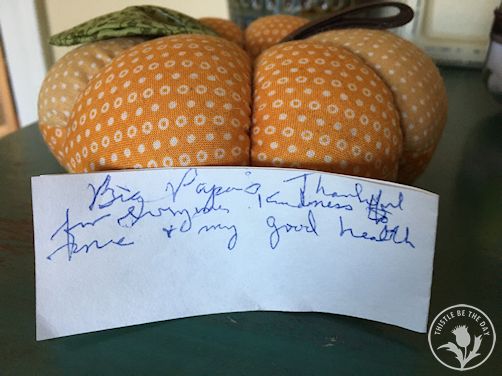 Big Papa's Thankful
for everyones kindness to
me & my good health
THISTLE BE THE DAY